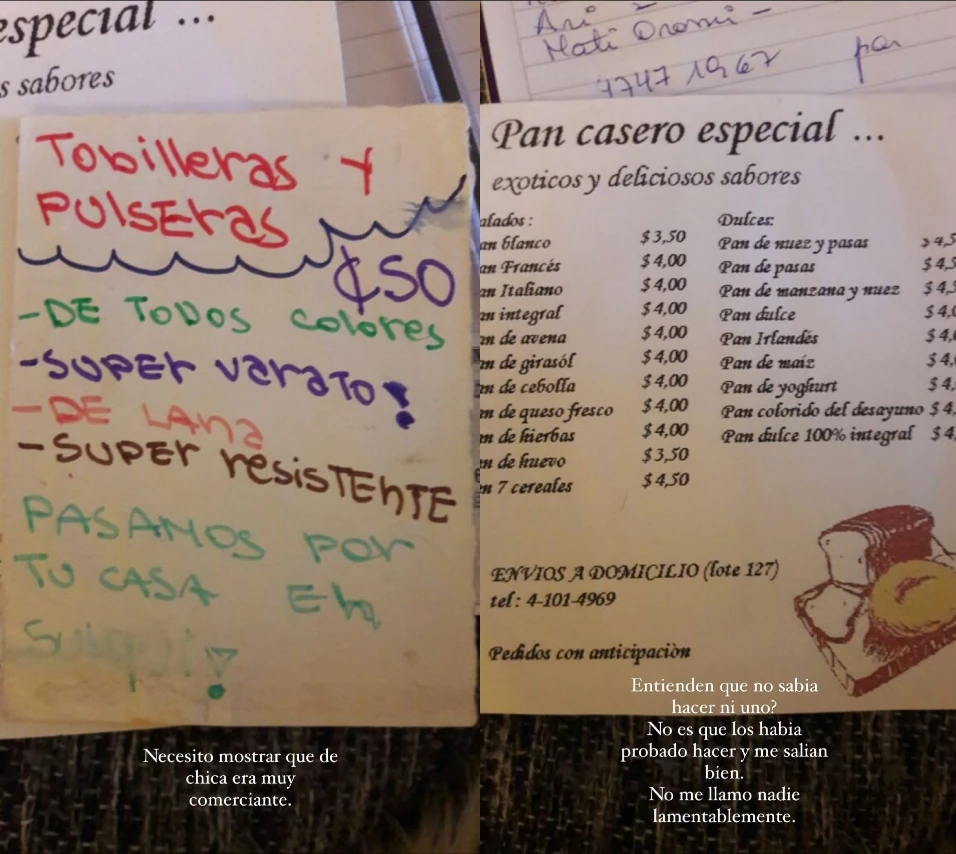 especial ...
s sabores
Tobilleras Y
PULSEras
¢50
-DE TODOS colores
-SUPEr varaTo!
-DE LANa
-SUPEr resisTEnTE
PASAMOS POr
TU CASA En
Necesito mostrar que de
chica era muy
comerciante.
Ari
Mati Oromi -
4747 1967 por
Pan casero especial ...
exoticos y deliciosos sabores
alados :
an blanco $ 3,50
an Francés $ 4,00
an Italiano $ 4,00
an integral $ 4,00
an de avena $ 4,00
an de girasól $ 4,00
an de cebolla $ 4,00
an de queso fresco $ 4,00
an de hierbas $ 4,00
an de huevo $ 3,50
an 7 cereales $ 4,50
Dulces:
Pan de nuez y pasas $ 4,5
Pan de pasas $ 4,5
Pan de manzana y nuez $ 4,5
Pan dulce $ 4,0
Pan Irlandés $ 4,
Pan de maíz $ 4,
Pan de yoghurt $ 4,
Pan colorido del desayuno $ 4,
Pan dulce 100% integral $ 4,
ENVIOS A DOMICILIO (lote 127)
tel : 4-101-4969
Pedidos con anticipaciòn
Entienden que no sabia
hacer ni uno?
No es que los habia
probado hacer y me salian
bien.
No me llamo nadie
lamentablemente.